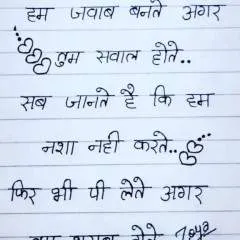 हम जवाब बनते अगर
तुम सवाल होते..
सब जानते है कि हम
नशा नही करते..
फिर भी पी लेते अगर